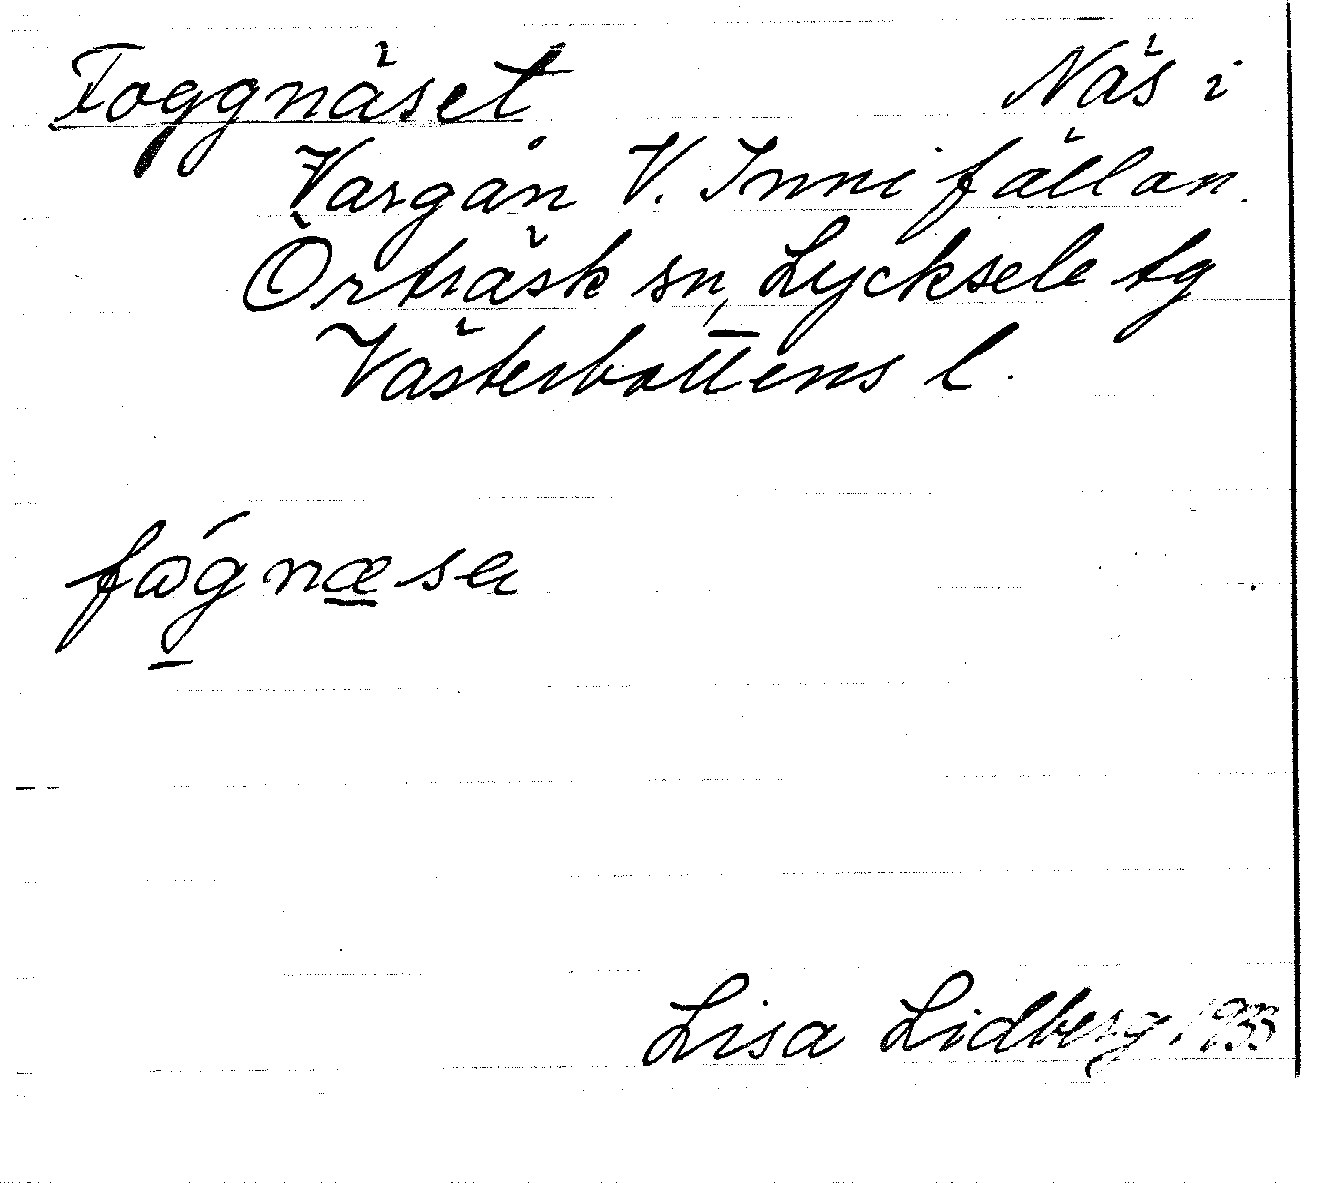 Foggnäset Näs i
Vargån V. Innifällan.
Örträsk sn, Lycksele tg
Västerbottens l.
Lisa Lidberg 1933